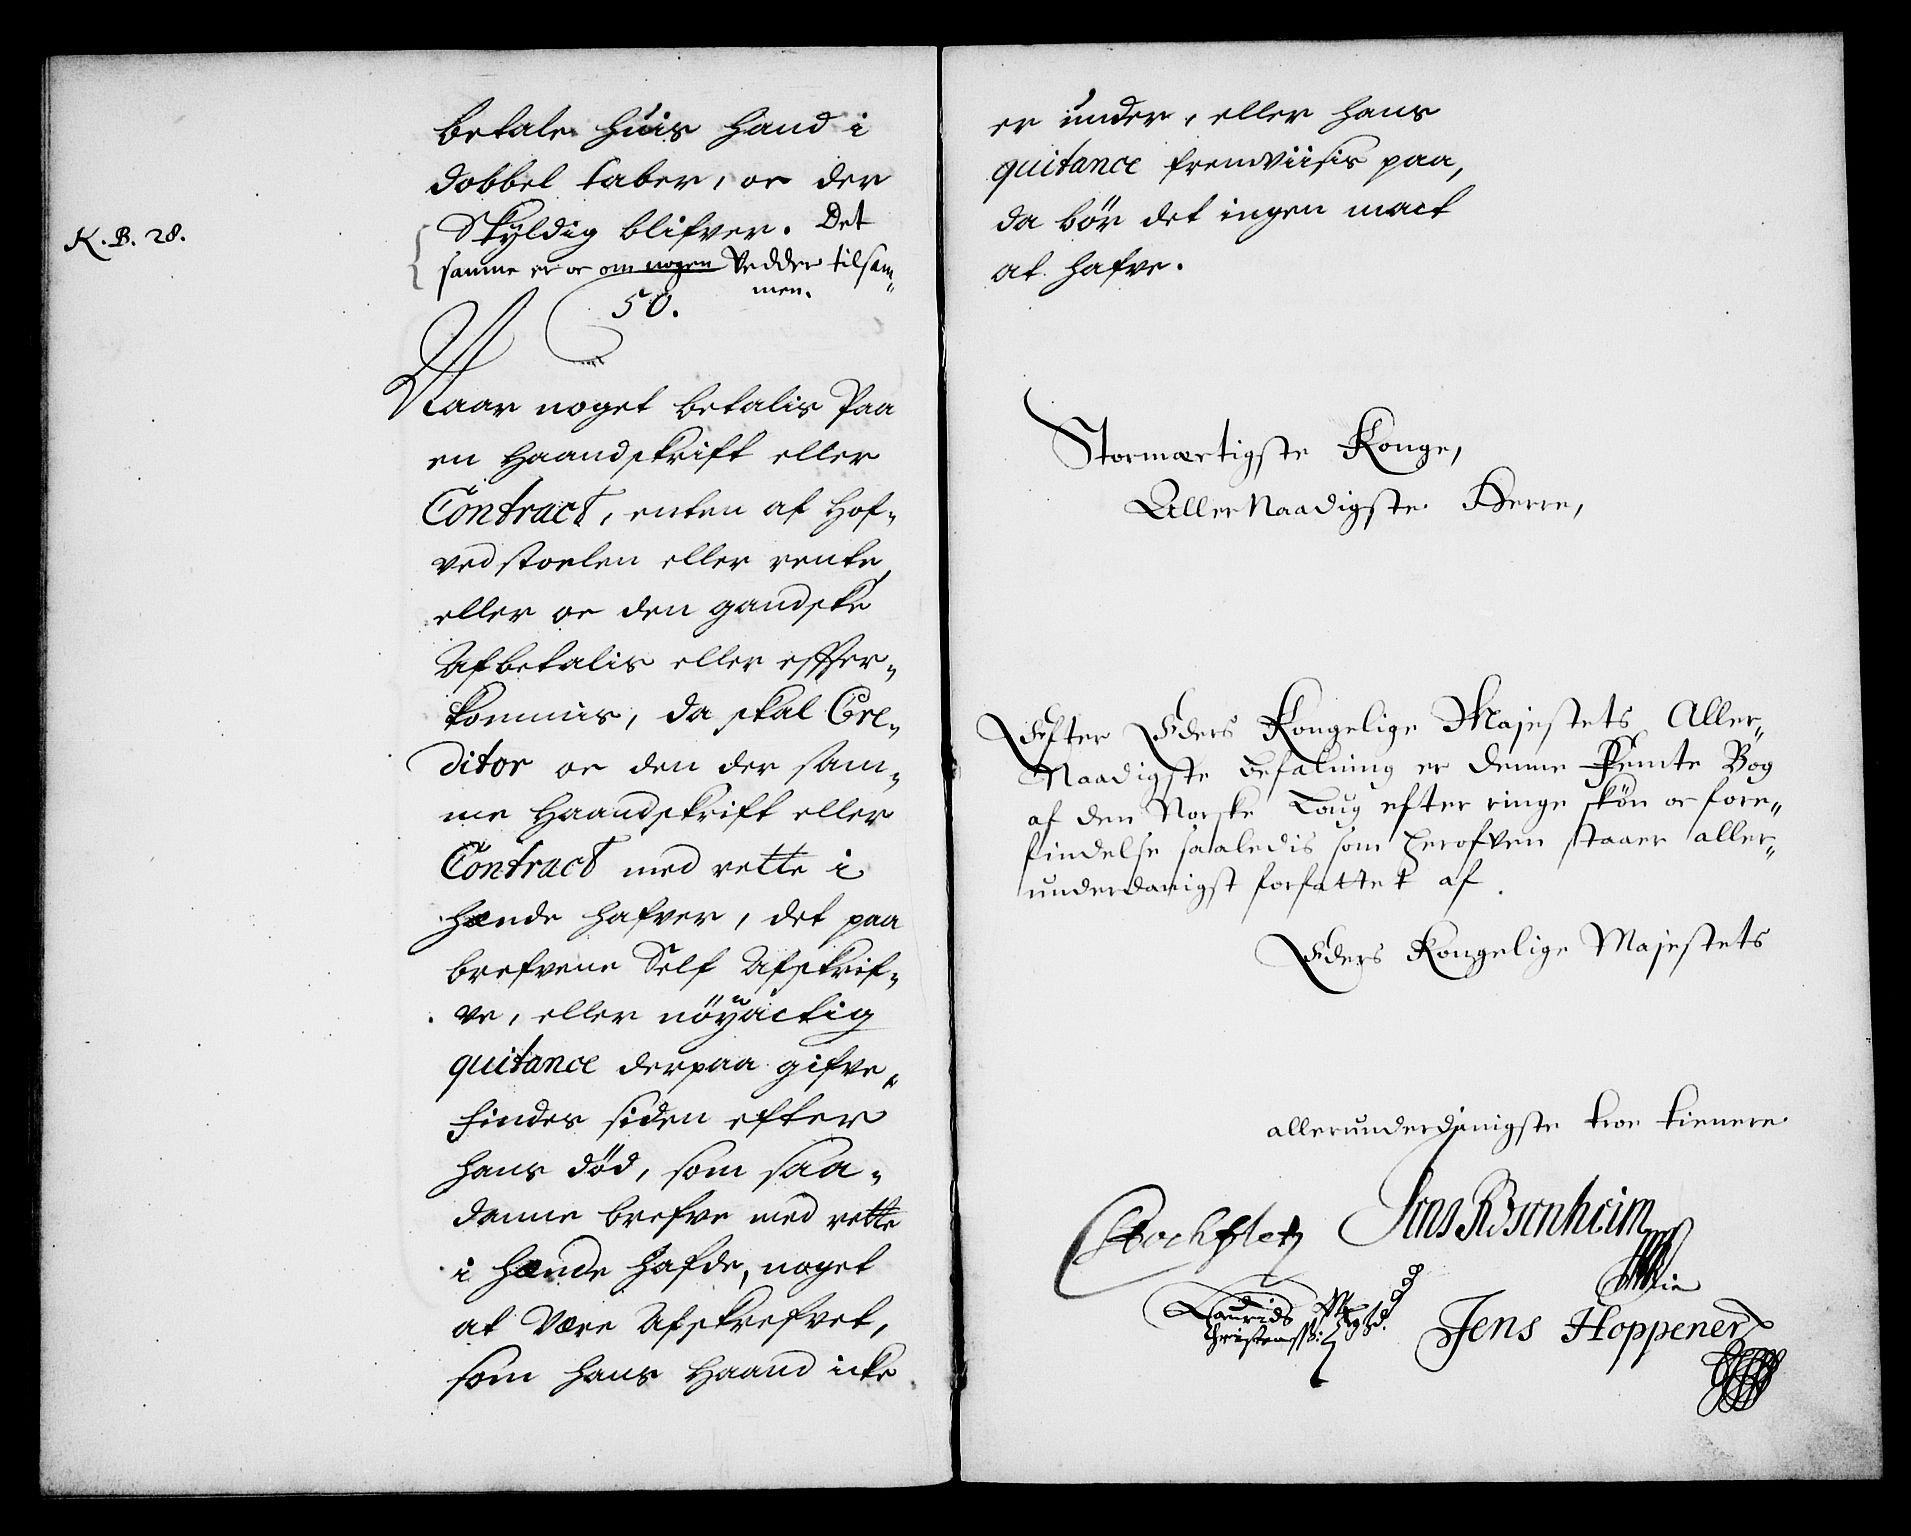 K. B. 28.
betale huis hand i
dobbel taber, oc der
Skyldig blifver. Det
samme er oc om nogen Vedder tilsam„
men.
50.
Naar noget betalis Paa
en Haandskrift eller
Contract, enten af Hof„
vedstoelen eller rente,
eller oc den gandske
Afbetalis eller effter„
kommis, da skal Cre„
ditor oc den der sam„
me Haandskrift eller
Contract med rette i
hænde hafver, det paa
brefvene Self Afskrif„
ve, eller nöyactig
quitance derpaa gifve„
Findes siden efter
hans död, som saa„
danne brefve med rette
i hænde hafde, noget
at Være Afskrefvet,
som hans Haand icke
er under, eller hans
quitance fremviisis paa,
da bör det ingen mact
at hafve.
Stormectigste Konge,
AllerNaadigste Herre,
Efter Eders Kongelige Majestets Aller„
Naadigste befalning er denne Femte Bog
af den Norske Loug efter ringe skön oc fore„
findelse saaledis som herofven staaer aller„
underdanigst forfattet af
Eders Kongelige Majestets
allerunderdanigste troe tienere
Stochfleth Jens Rosenheim
Laurids
Christenss:
Jens Hoppener